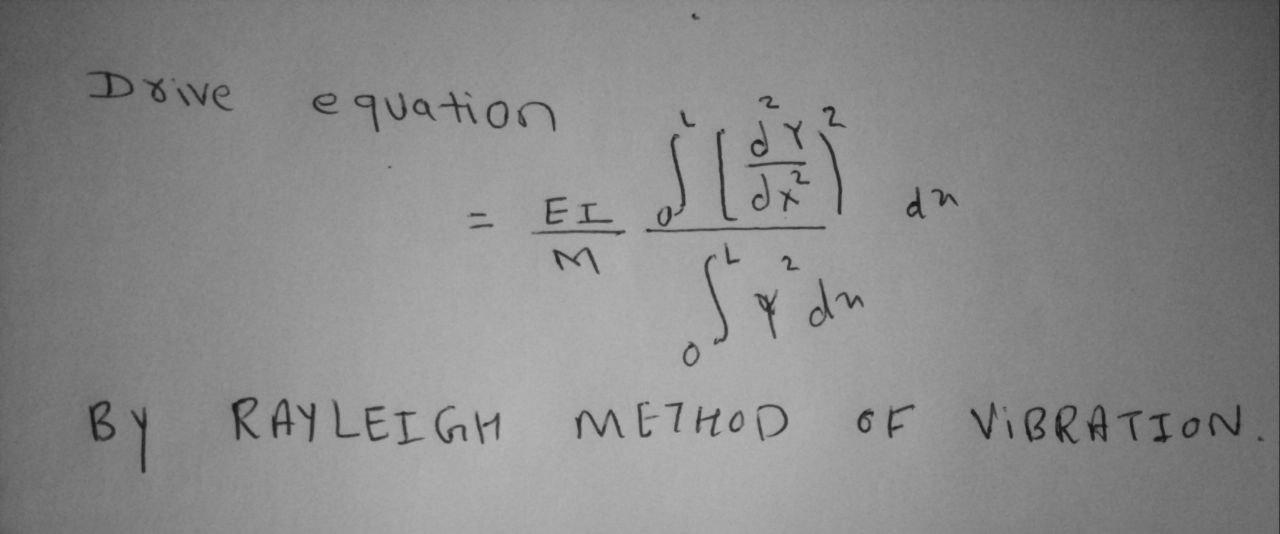 Drive equation
= EI/M ∫₀ᴸ [d²Y/dx²)² dx / ∫₀ᴸ Y² dx
BY RAYLEIGH METHOD OF ViBRATION.